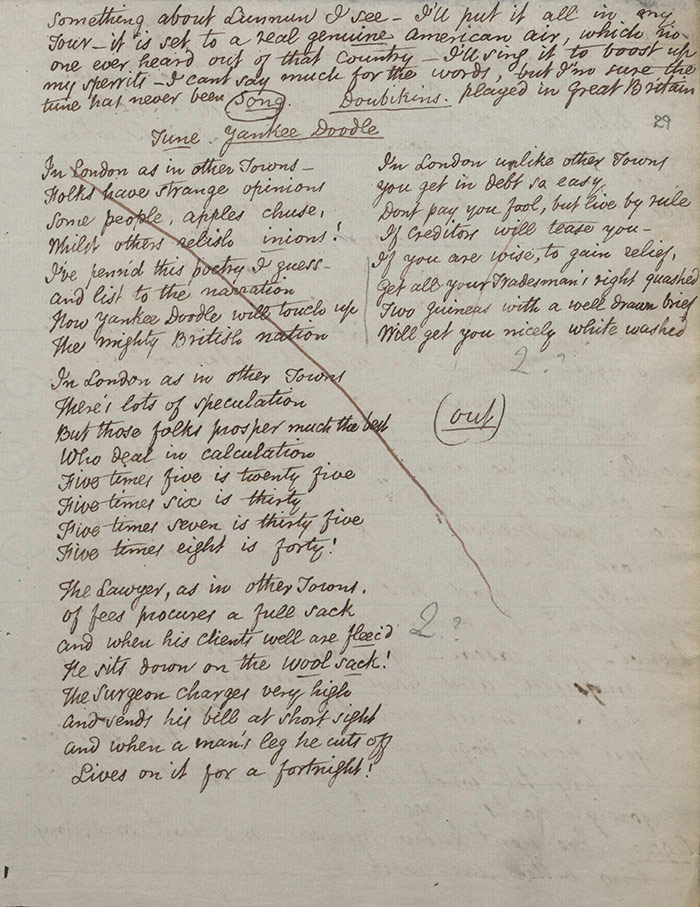 Something about Lunnun I see - I'll put it all in my
Tour - it is set to a real genuine American air, which no
one ever heard out of that Country - I'll sing it to boost up
my sperrits - I cant say much for the words, but I'm sure the
tune has never been played in Great Britain
Song. Doubikins.
29
Tune Yankee Doodle
In London as in other Towns -
Folks have strange opinions
Some people, apples chuse,
Whilst others relish inions!
I've penn'd this poetry I guess -
and list to the narration
How Yankee Doodle will touch up
The mighty British nation
In London as in other Towns
There's lots of speculation
But those folks prosper much the best
Who deal in calculation
Five times five is twenty five
Five times six is thirty
Five times seven is thirty five
Five times eight is forty!
The Lawyer, as in other Towns,
of fees procures a full sack
and when his clients well are fleec'd
He sits down on the wool sack!
The Surgeon charges very high
and sends his bill at short sight
and when a man's leg he cuts off
Lives on it for a fortnight!
2?
In London unlike other Towns
you get in debt so easy
Dont pay you fool, but live by rule
If Creditors will tease you -
If you are wise, to gain relief,
Get all your Tradesman's right quashed
Two guineas with a well drawn brief
Will get you nicely white washed
2.?
(out)